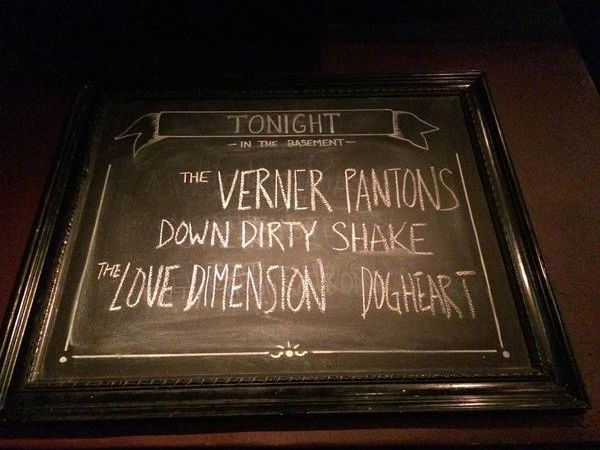 TONIGHT
- IN THE BASEMENT -
THE VERNER PANTONS
DOWN DIRTY SHAKE
THE LOVE DIMENSION DOGHEART